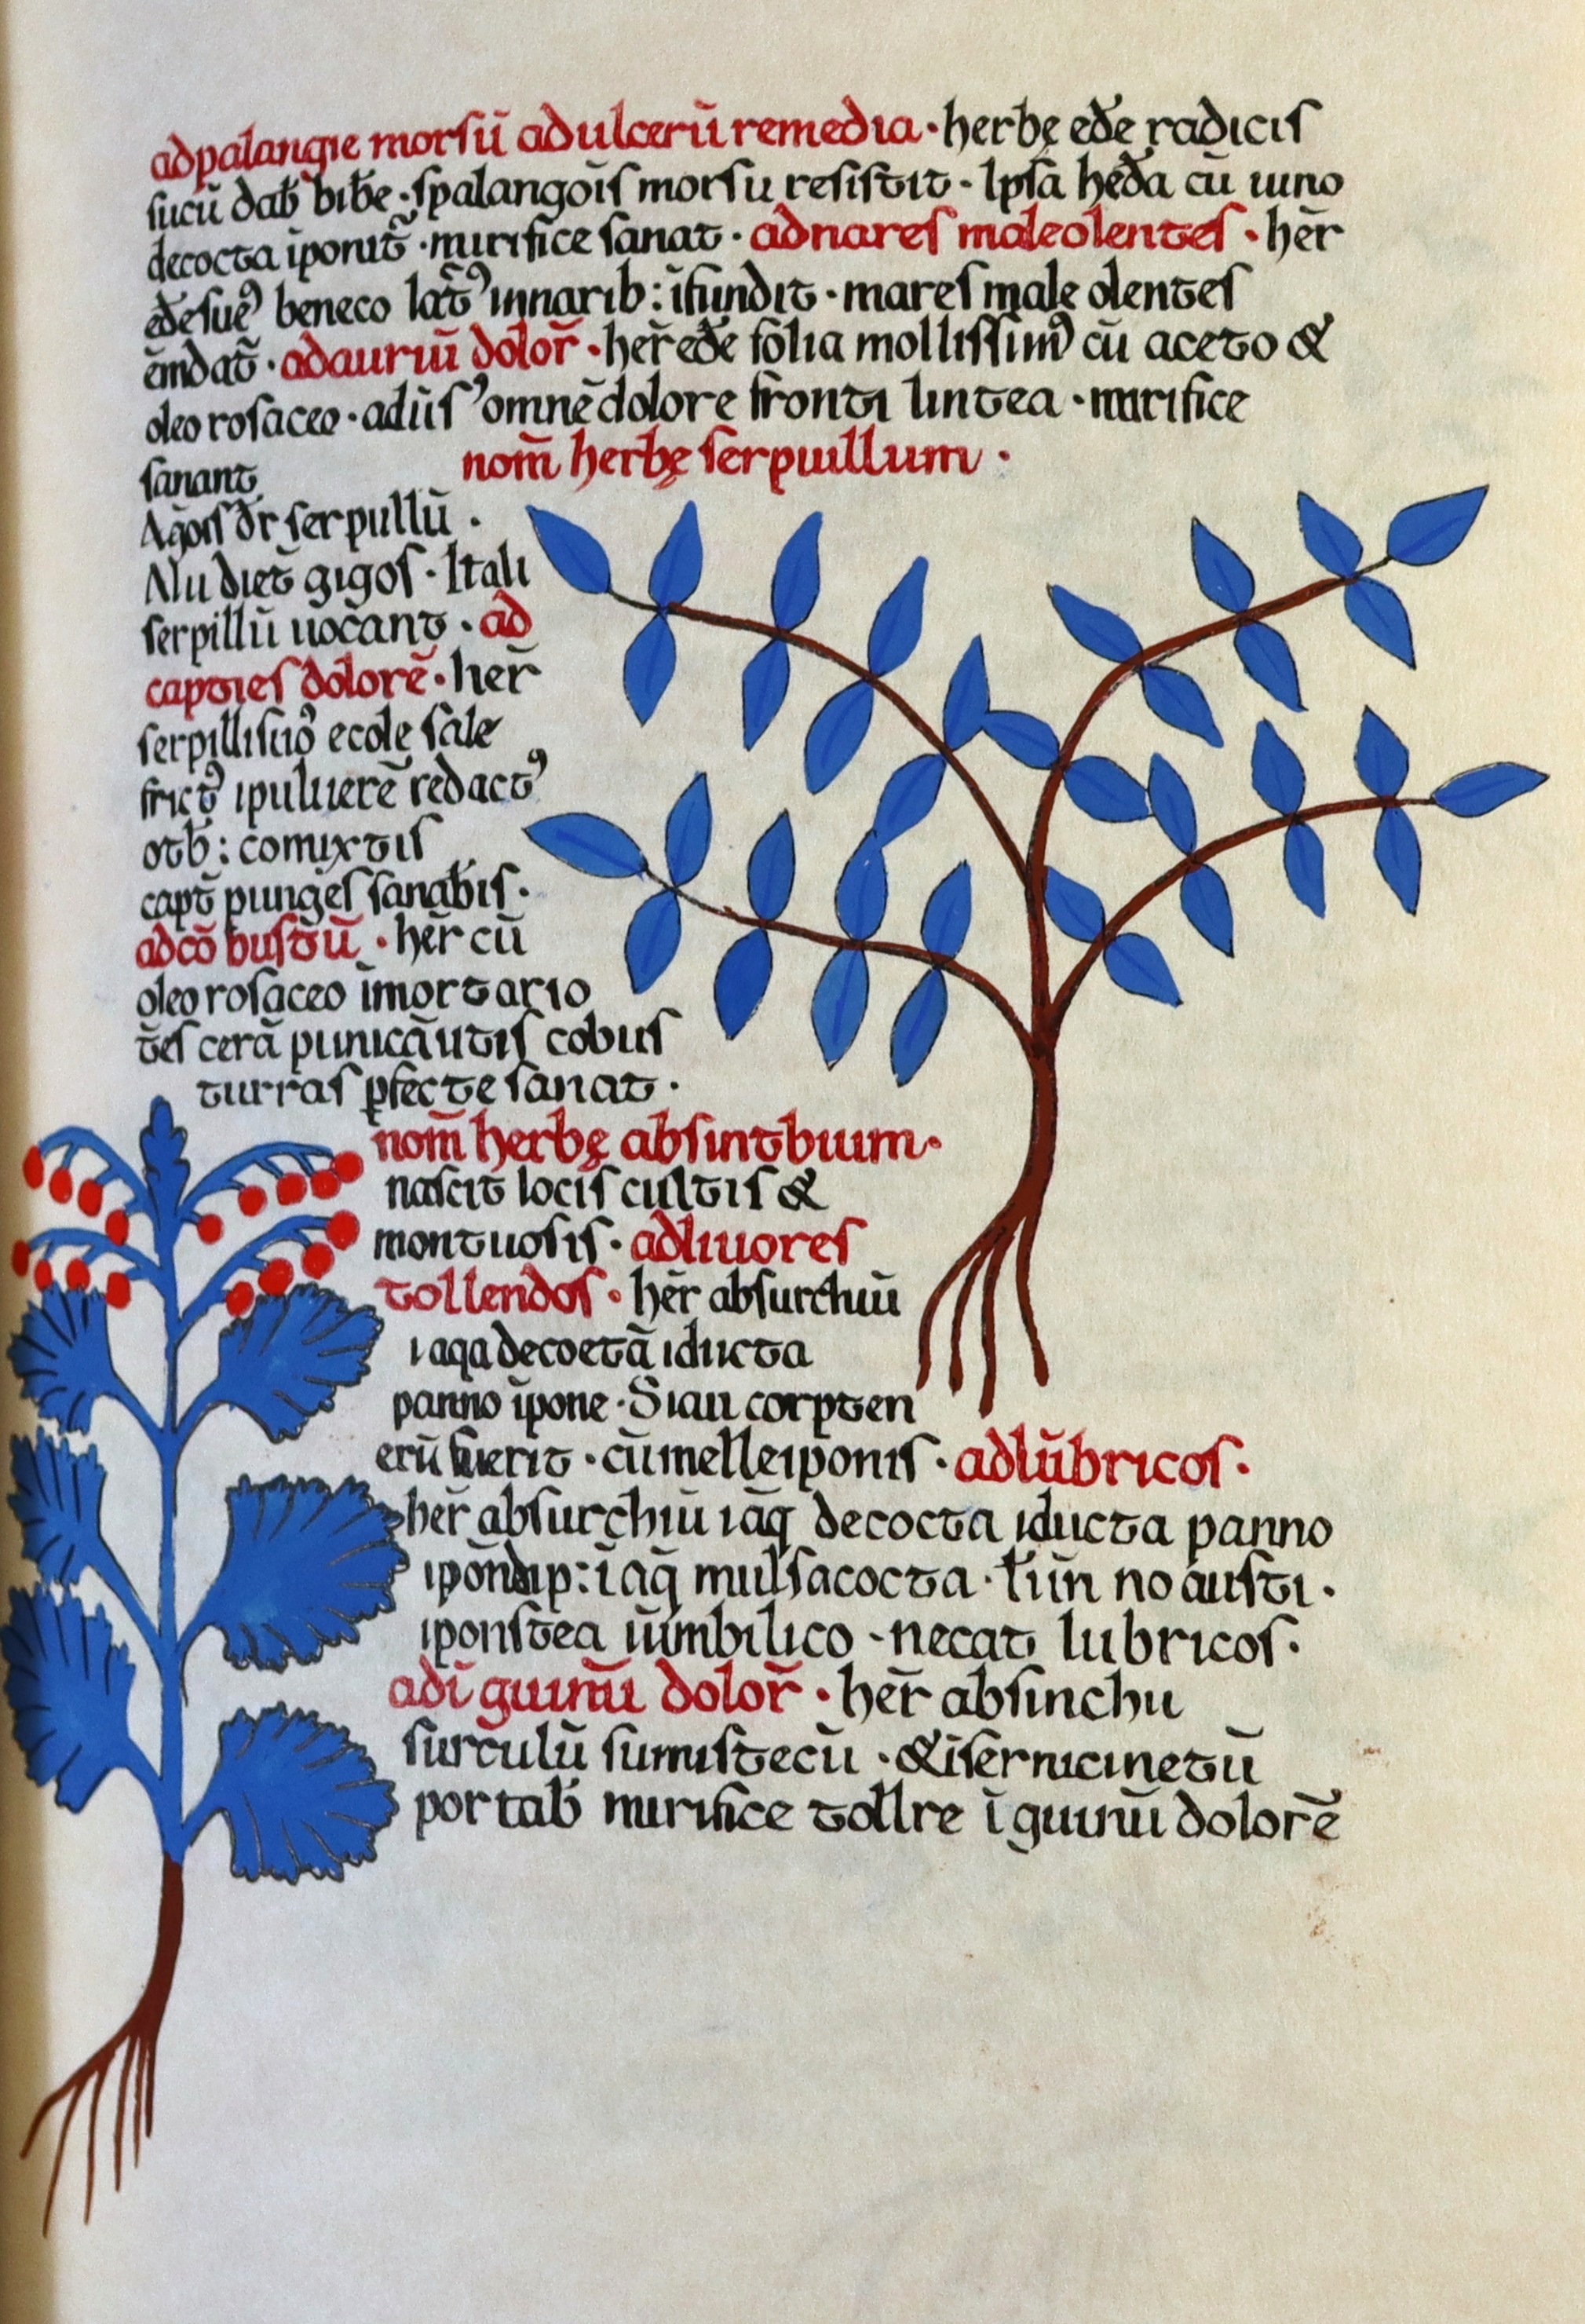 adpalangie morsū adulcerū remedia · herbę eđe radicis
sucū dab̄ bibe · spalangōis morsu resistit · Ipsa hed̄a cū uino
decocta īponit̄ · mirifice sanat · adnares maleolentes · her̄
eđesuẽ beneco lāt᾽ innarib: īfundit · mares male olentes
ēmdat̄ · adauriū dolor̄ · her̄ eđe folia mollissim᾽ cū aceto &
oleo rosaceo · adūs ᾽ omnē dolore fronti lintea · mirifice
sanant
nom̄ herbę serpuillum ·
Agōis dr̄ serpullū ·
Alu diet̄ gigos · Itali
serpillū uocānt · ad
capties dolorē · her̄
serpillisuc᾽ ecole sale
frict᾽ ipuluerē redact᾽
otb: comixtis
capt̄ punges sanabis ·
adcō bustū · her̄ cū
oleo rosaceo īmortario
t̄es cerā punicā utis cobus
turras pfecte sanat ·
nom̄ herbę absintbium ·
nascit locis cultis &
montuosis · adliuores
tollendos · her̄ absurchiū
i aqa decoctā iducta
panno īpone · Siau corpten
erū fuerit · cū melle iponis · adlūbricos ·
her̄ absurchiū i āq decocta iducta panno
ipōndip: ī aq̄ mulsacocta · t̄ iīn no austi ·
iponstea ūimbilico · necat lubricos ·
adī guinū dolor̄ · her̄ absinchii
surculū sumistecū · & isernicinetū
portab̄ mirifice tollre ī guinū dolorē